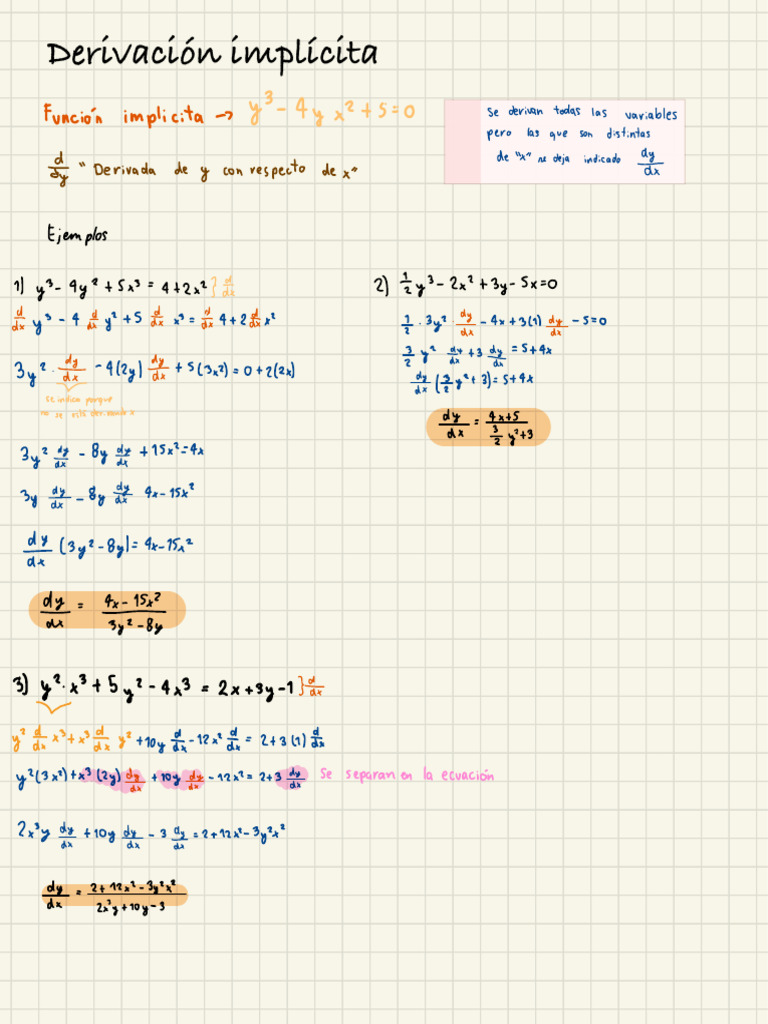 Derivación implícita
Función implicita → y³ - 4y x² + 5 = 0
se derivan todas las variables
pero las que son distintas
de "x" se deja indicado dy/dx
d/dy "Derivada de y con respecto de x"
Ejemplos
1) y³ - 4y² + 5x³ = 4 + 2x² } d/dx
d/dx y³ - 4 d/dx y² + 5 d/dx x³ = d/dx 4 + 2 d/dx x²
3y² · dy/dx - 4(2y) dy/dx + 5(3x²) = 0 + 2(2x)
se indica porque
no se está derivando x
3y² dy/dx - 8y dy/dx + 15x² = 4x
3y dy/dx - 8y dy/dx 4x - 15x²
dy/dx (3y² - 8y) = 4x - 15x²
dy/dx = (4x - 15x²)/(3y² - 8y)
2) 1/2 y³ - 2x² + 3y - 5x = 0
1/2 · 3y² · dy/dx - 4x + 3(1) dy/dx - 5 = 0
3/2 y² dy/dx + 3 dy/dx = 5 + 4x
dy/dx (3/2 y² + 3) = 5 + 4x
dy/dx = (4x + 5)/(3/2 y² + 3)
3) y² · x³ + 5y² - 4x³ = 2x + 3y - 1 } d/dx
y² d/dx x³ + x³ d/dx y² + 10y d/dx - 12x² d/dx = 2 + 3(1) d/dx
y²(3x²) + x³(2y) dy/dx + 10y dy/dx - 12x² = 2 + 3 dy/dx Se separan en la ecuación
2x³y dy/dx + 10y dy/dx - 3 dy/dx = 2 + 12x² - 3y²x²
dy/dx = (2 + 12x² - 3y²x²)/(2x³y + 10y - 3)